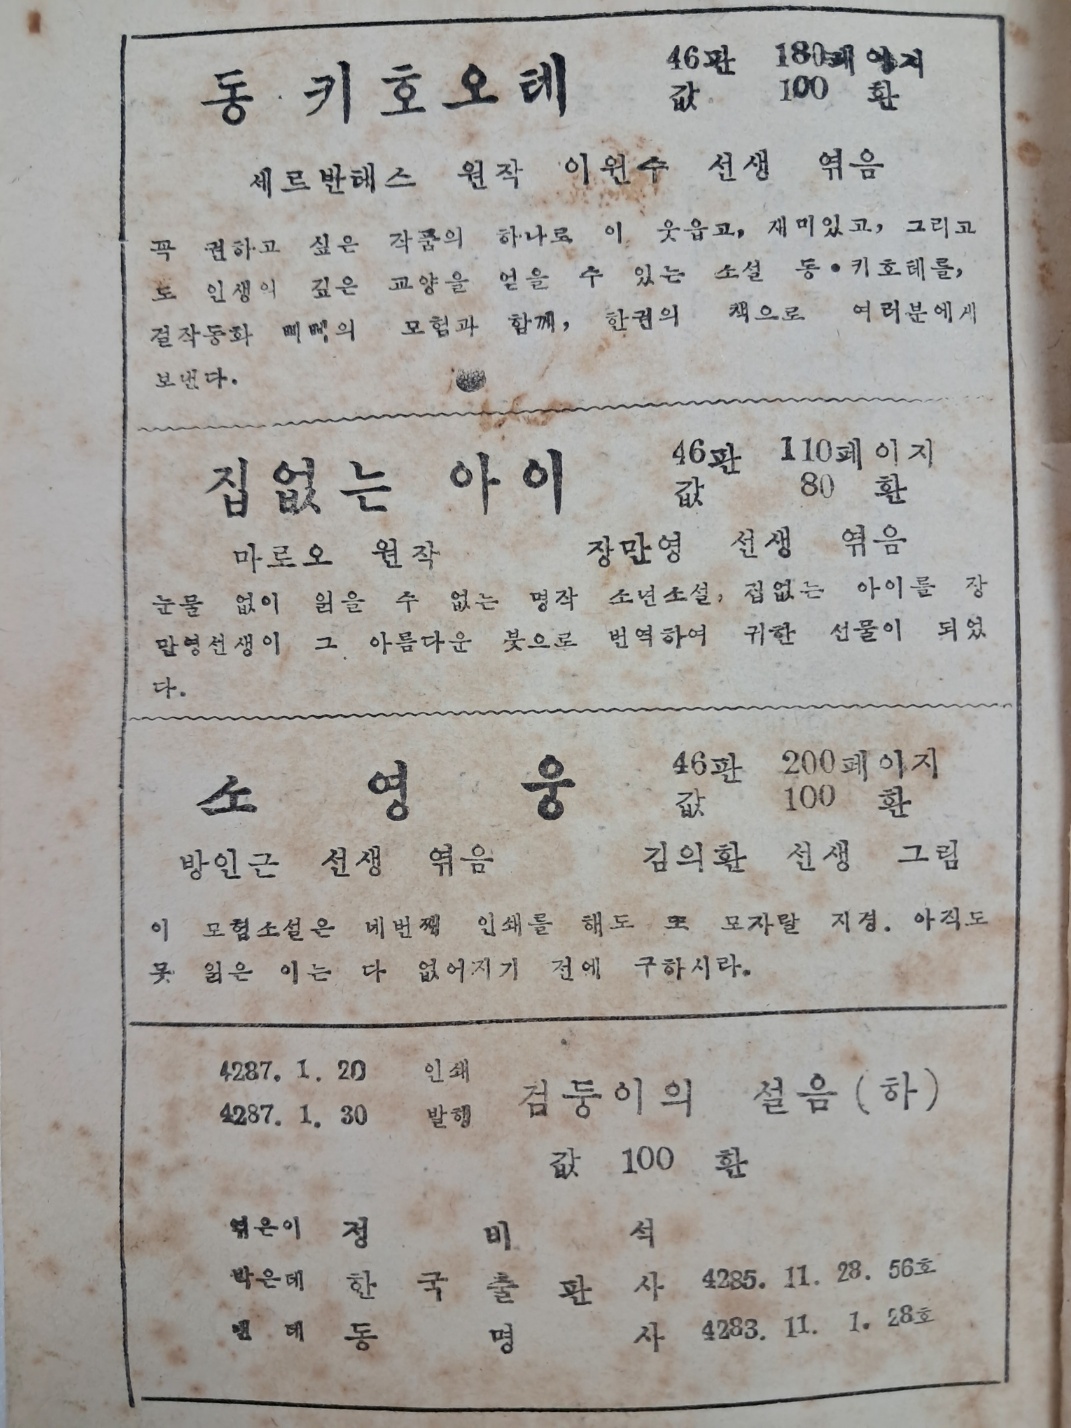 동·키호오테
46판 180페이지
값 100 환
세르반테스 원작 이원수 선생 엮음
꼭 권하고 싶은 작품의 하나로 이 웃읍고, 재미있고, 그리고
도 인생의 깊은 교양을 얻을 수 있는 소설 동·키호테를,
걸작동화 삐삑의 모험과 함께, 한권의 책으로 여러분에게
보낸다.
집없는 아이
46판 110페이지
값 80 환
마로오 원작 장만영 선생 엮음
눈물 없이 읽을 수 없는 명작 소년소설, 집없는 아이를 장
만영선생이 그 아름다운 붓으로 번역하여 귀한 선물이 되었
다.
소영웅
46판 200페이지
값 100 환
방인근 선생 엮음 김의환 선생 그림
이 모험소설은 네번째 인쇄를 해도 또 모자랄 지경. 아직도
못 읽은 이는 다 없어지기 전에 구하시라.
4287. 1. 20 인쇄
4287. 1. 30 발행
검둥이의 설음(하)
값 100 환
엮은이 정비석
박은데 한국출판사 4285. 11. 28. 56호
낸데 동명사 4283. 11. 1. 28호